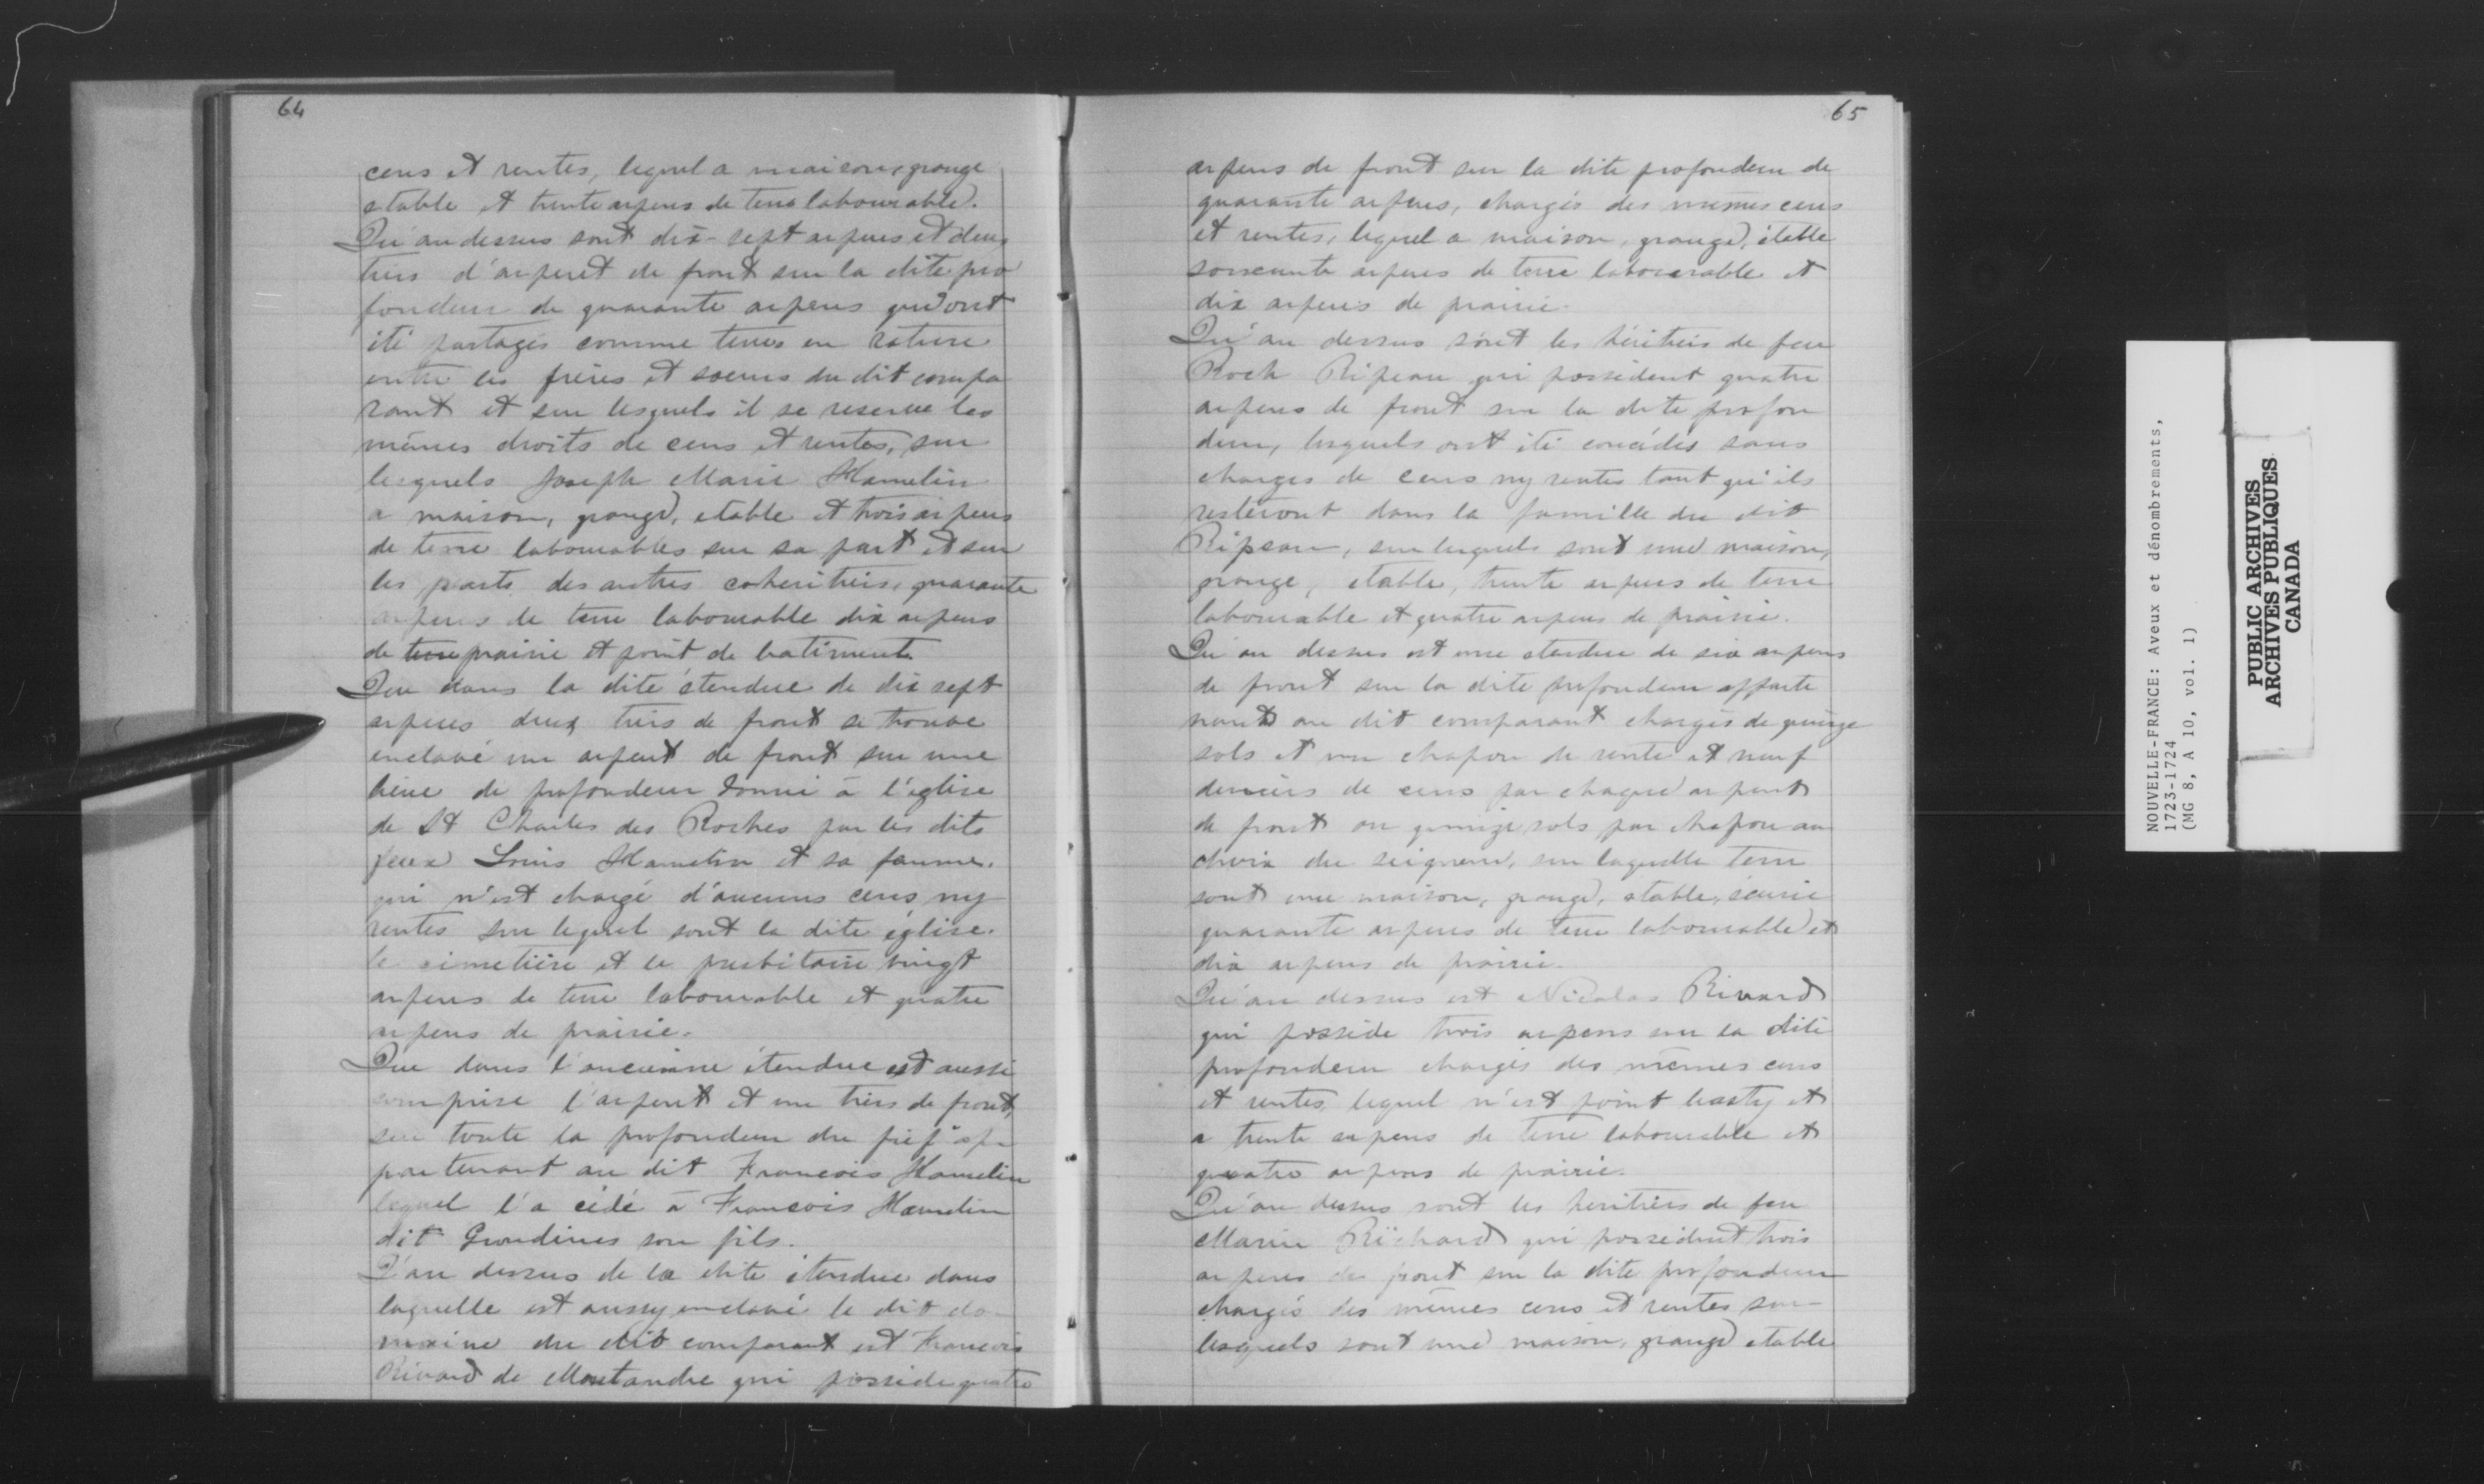 64
cens et rentes, lequel a maison, grange
etable et trente arpens de terre labourable.
Qu'au dessus sont dix-sept arpens et deux
tiers d'arpent de front sur la dite pro
fondeur de quarante arpens qui ont
été partagés comme terres en roture
entre les frères et soeurs du dit compa
rant et sur lesquels il se reserve les
mêmes droits de cens et rentes, sur
lesquels Joseph Marie Hamelin
a maison, grange, etable et trois arpens
de terre labourables sur sa part et sur
les parts des autres coheritiers, quarante
arpens de terre labourable dix arpens
de terre prairie et point de batiments
Que dans la dite étendue de dix sept
arpens deux tiers de front se trouve
enclavé un arpent de front sur une
lieue de profondeur donné à l'église
de St Charles des Roches par les dits
feux Louis Hamelin et sa femme.
qui n'est chargé d'aucuns cens ny
rentes sur lequel sont la dite église.
le cimetière et le presbitaire vingt
arpens de terre labourable et quatre
arpens de prairie.
Que dans l'ancienne étendue est aussi
comprise l'arpent et un tiers de front,
sur toute la profondeur du fief ap
partenant au dit Francois Hamelin
lequel l'a cédé à Francois Hamelin
dit Grondines son fils.
Q'au dessus de la dite étendue dans
laquelle est aussy enclavé le dit do
maine du dit comparant est Francois
Rivard de Montandre qui possede quatre
65
arpens de front sur la dite profondeur de
quarante arpens, chargés des mêmes cens
et rentes, lequel a maison, grange, étable
soixante arpens de terre labourable et
dix arpens de prairie.
Qu'au dessus sont les héritiers de feu
Roch Ripeau qui possèdent quatre
arpens de front sur la dite profon
deur, lesquels ont été concédés sans
charges de cens ny rentes tant qu'ils
resteront dans la famille du dit
Ripeau, sur lesquels sont une maison,
grange, etable, trente arpens de terre
labourable et quatre arpens de prairie.
Qu'au dessus est une etendue de six arpens
de front sur la dite profondeur apparte
nants au dit comparant chargés de quinze
sols et un chapon de rente et neuf
deniers de cens par chaque arpent
de front ou quinze sols par chapon au
choix du seigneur, sur laquelle terre
sont une maison, grange, etable, écurie
quarante arpens de terre labourable et
dix arpens de prairie.
Qu'au dessus est Nicolas Rivard
qui possède trois arpens sur la dite
profondeur chargés des mêmes cens
et rentes, lequel n'est point basty et
a trente arpens de terre labourable et
quatre arpens de prairie.
Qu'au dessus sont les heritiers de feu
Marin Richard qui possèdent trois
arpens de front sur la dite profondeur
chargés des mêmes cens et rentes sur
lesquels sont une maison, grange etable
NOUVELLE-FRANCE: Aveux et dénombrements,
1723-1724
(MG 8, A 10, vol. 1)
PUBLIC ARCHIVES
ARCHIVES PUBLIQUES
CANADA